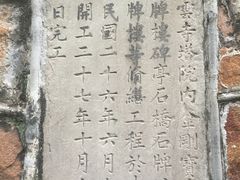 雲寺塔院內金剛寶
牌樓碑亭石橋石牌
牌樓等修繕工程於
民國二十六年六月
開工二十七年十月
日完工